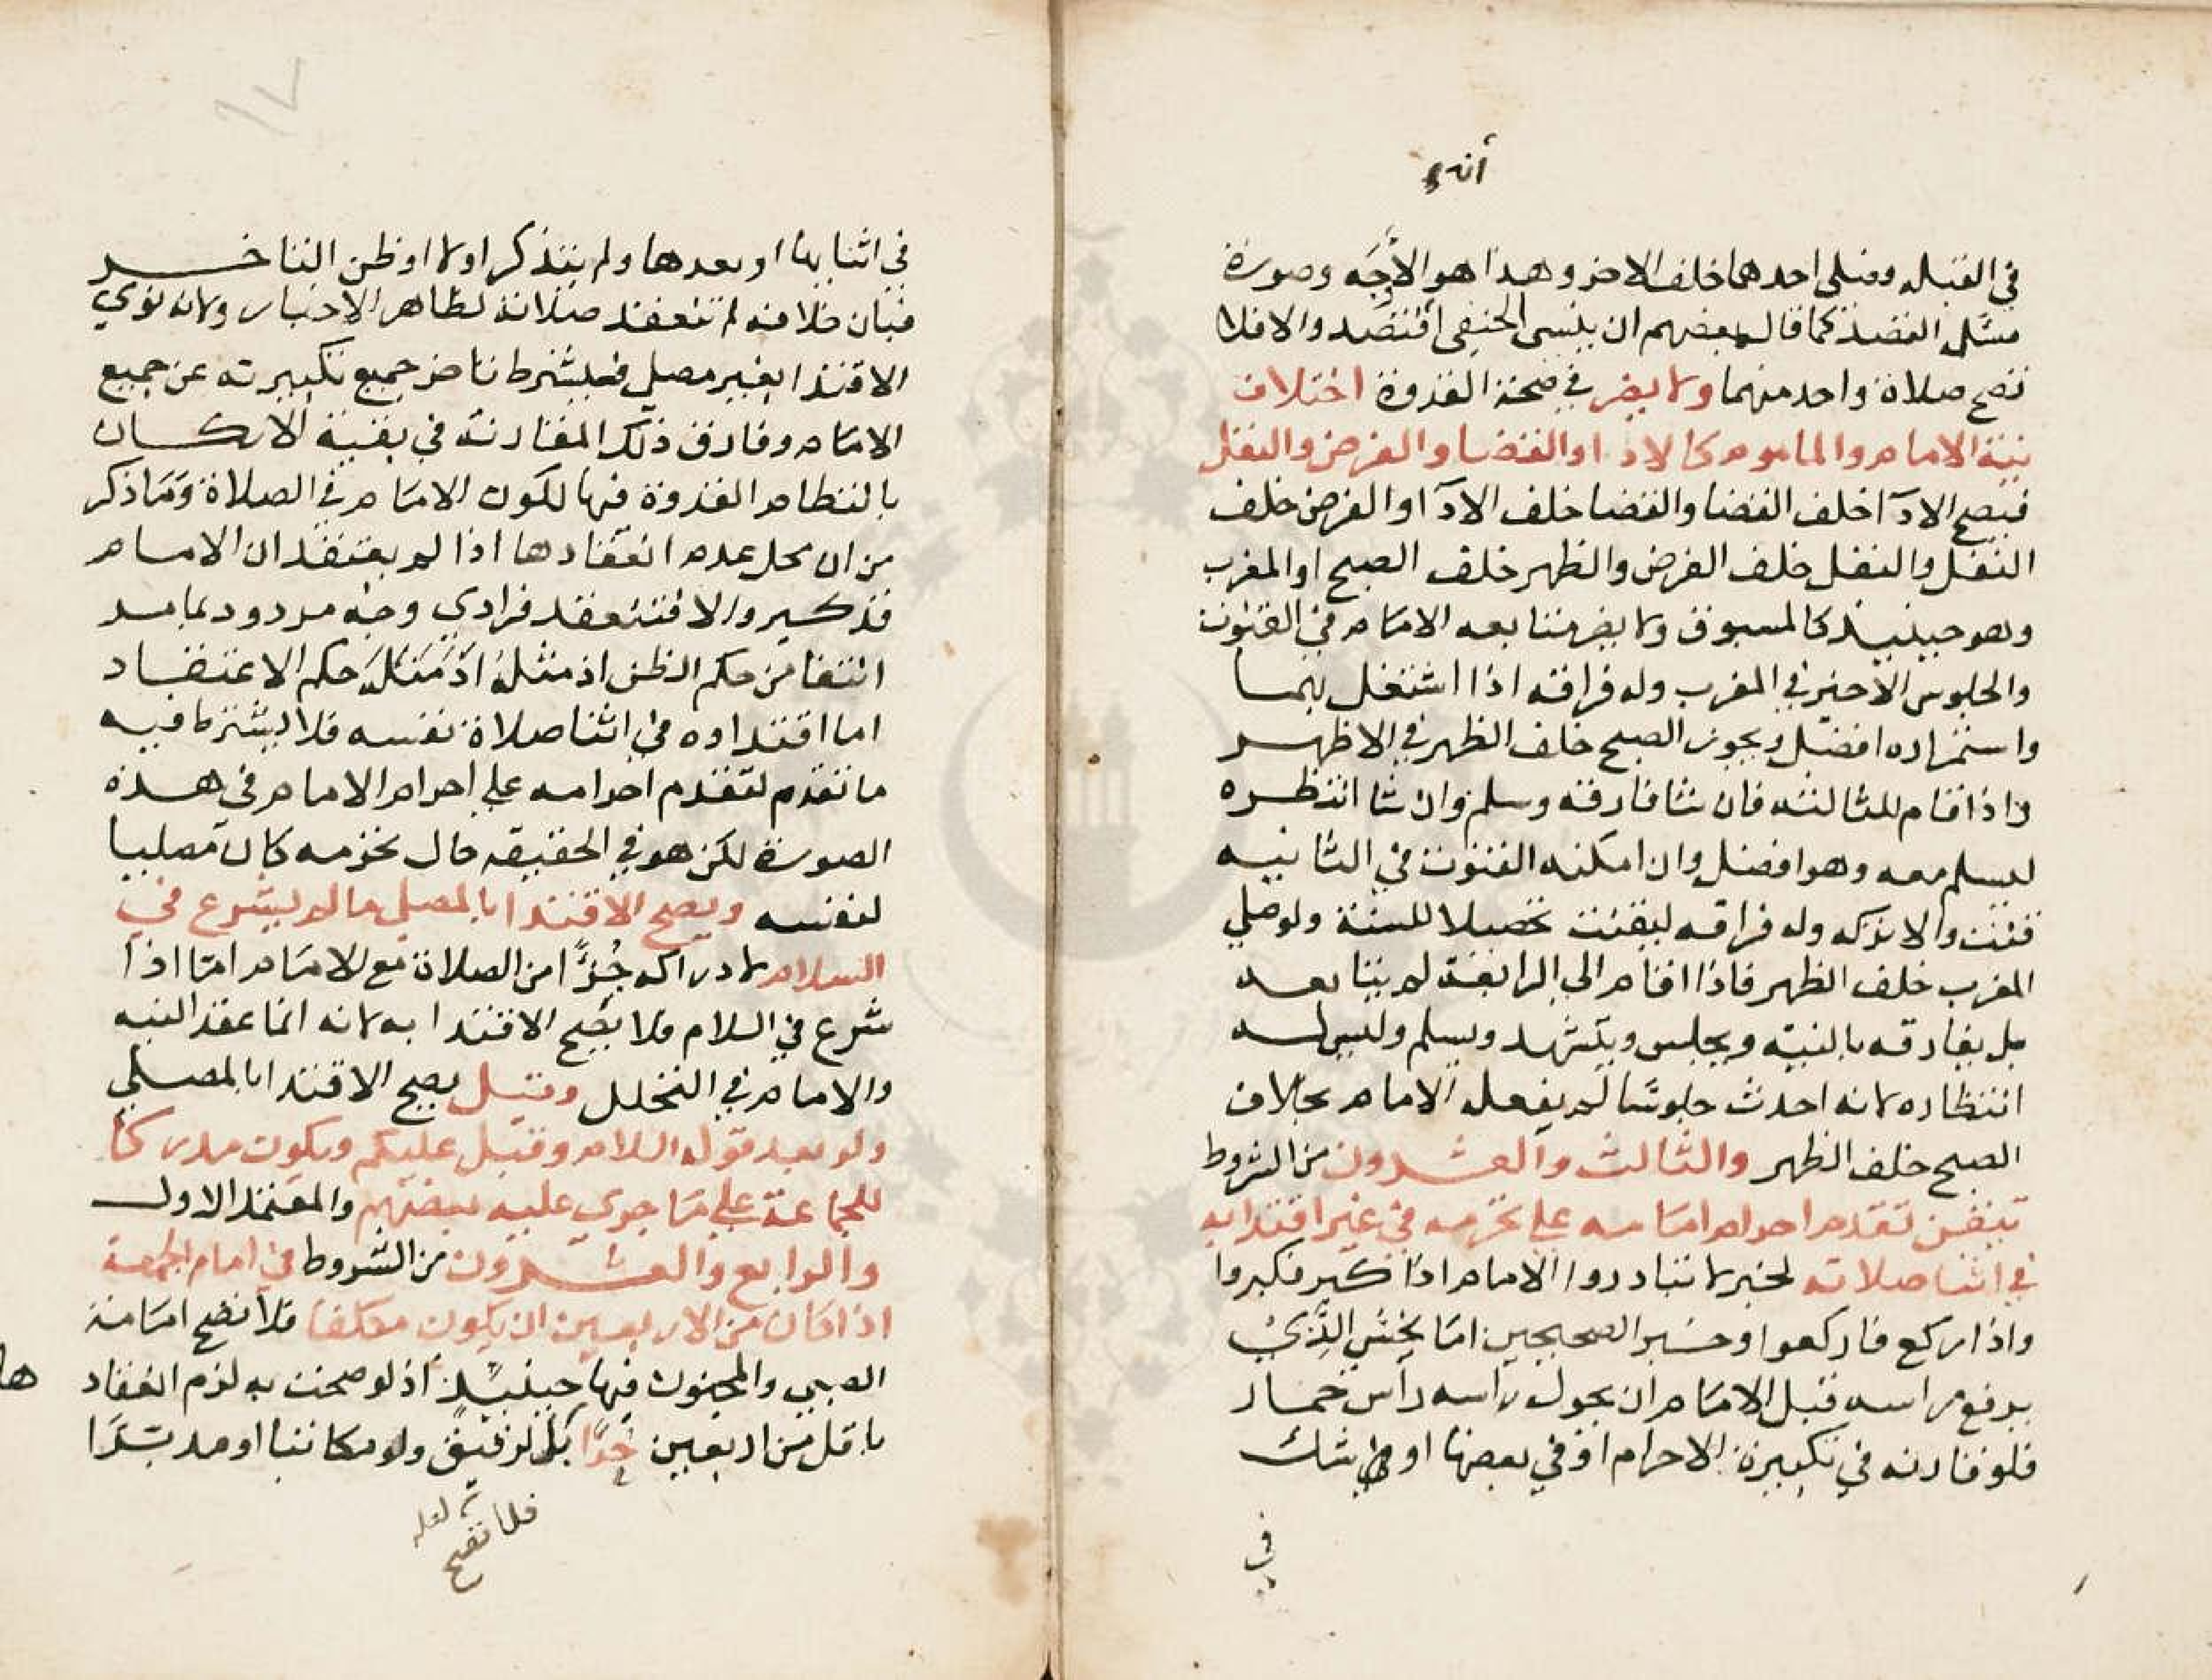 أنه
في القبله وصلى احدهما خلف الاخر وهذا هو الأوجَه وصورة
مسئله الفصد كما قال بعضهم ان ينسى الحنفي افتصد والا فلا
تصح صلاة واحد منهما ولا يضر في صحة القدوة اختلاف
نية الامام والماموم كالادا والقضا والفرض والنفل
فيصح الادآ خلف القضا والقضا خلف الادآ والفرض خلف
النفل والنفل خلف الفرض والظهر خلف الصبح او المغرب
وهو حينيذ كالمسبوق ولا يضر متابعه الامام في القنوت
والجلوس الاخير في المغرب وله فراقه اذا اشتغل بهما
واستمراره افضل ويجوز الصبح خلف الظهر في الاظهر
واذا قام للثالثه فان شا فارقه وسلم وان شا انتظره
ليسلم معه وهو افضل وان امكنه القنوت في الثانيه
قنت والا تركه وله فراقه ليقنت تحصيلا للسنة ولو صلي
المغرب خلف الظهر فاذا اقام الي الرابعة لم يتابعه
بل يفارقه بالنية ويجلس ويتشهد ويسلم وليس له
انتظاره لانه احدث جلوسًا لم يفعله الامام بخلاف
الصبح خلف الظهر والثالث والعشرون من الشروط
تيقن تقدم احرام امامه علي تحرمه في غير اقتدايه
في اثنا صلاته لخبر لا تبادروا الامام اذا كبر فكبروا
واذا ركع فاركعوا وخبر الصحيحين اما يخشي الذي
يرفع راسه قبل الامام ان يحول راسه راس حمار
فلو قارنه في تكبيرة الاحرام او في بعضها او شك
في
في اثنايها او بعدها ولم يتذكر اولا او ظن التاخر
فبان خلافه لم تنعقد صلاته لظاهر الاخبار ولانه نوي
الاقتدا بغير مصلي فيشترط تاخر جميع تكبيرته عن جميع
الامام وفارق ذلك المقارنة في بقية الاركان
بانتظام القدوة فيها لكون الامام في الصلاة وَمَا ذكر
من ان محل عدم انعقادها اذا لم يعتقد ان الامام
قد كبر والا فتنعقد فرادي وجه مردود بما مر
انتفا من حكم الظن اذ مثله حكم الاعتقاد
اما اقتداوه في اثنا صلاة نفسه فلا يشترط فيه
ما تقدم لتقدم احرامه علي احرام الامام في هذه
الصورة لكن هو في الحقيقه حال تحرمه كان مصليا
لنفسه ويصح الاقتدا بالمصلي ما لم يشرع في
السلام لادراكه جُزًا من الصلاة مع الامام امّا اذا
شرع في السلام فلا يصح الاقتدا به لانه انما عقد النيه
والامام في التحلل وقيل يصح الاقتدا بالمصلي
ولو بعد قوله السلام وقبل عليكم ويكون مدركا
للجماعة علي مَا جري عليه بعضهم والمعتمد الاول
والرابع والعشرون من الشروط في امام الجمعة
اذا كان من الاربعين ان يكون مكلفا فلا تصح امَامة
الصبي والمجنون فيها حينيذ اذ لو صحت به لزم انعقاد
ها
باقل من اربعين حرًّا لرقيق ولو مكاتبا او مدبّرًا
فلا تصح
لعله